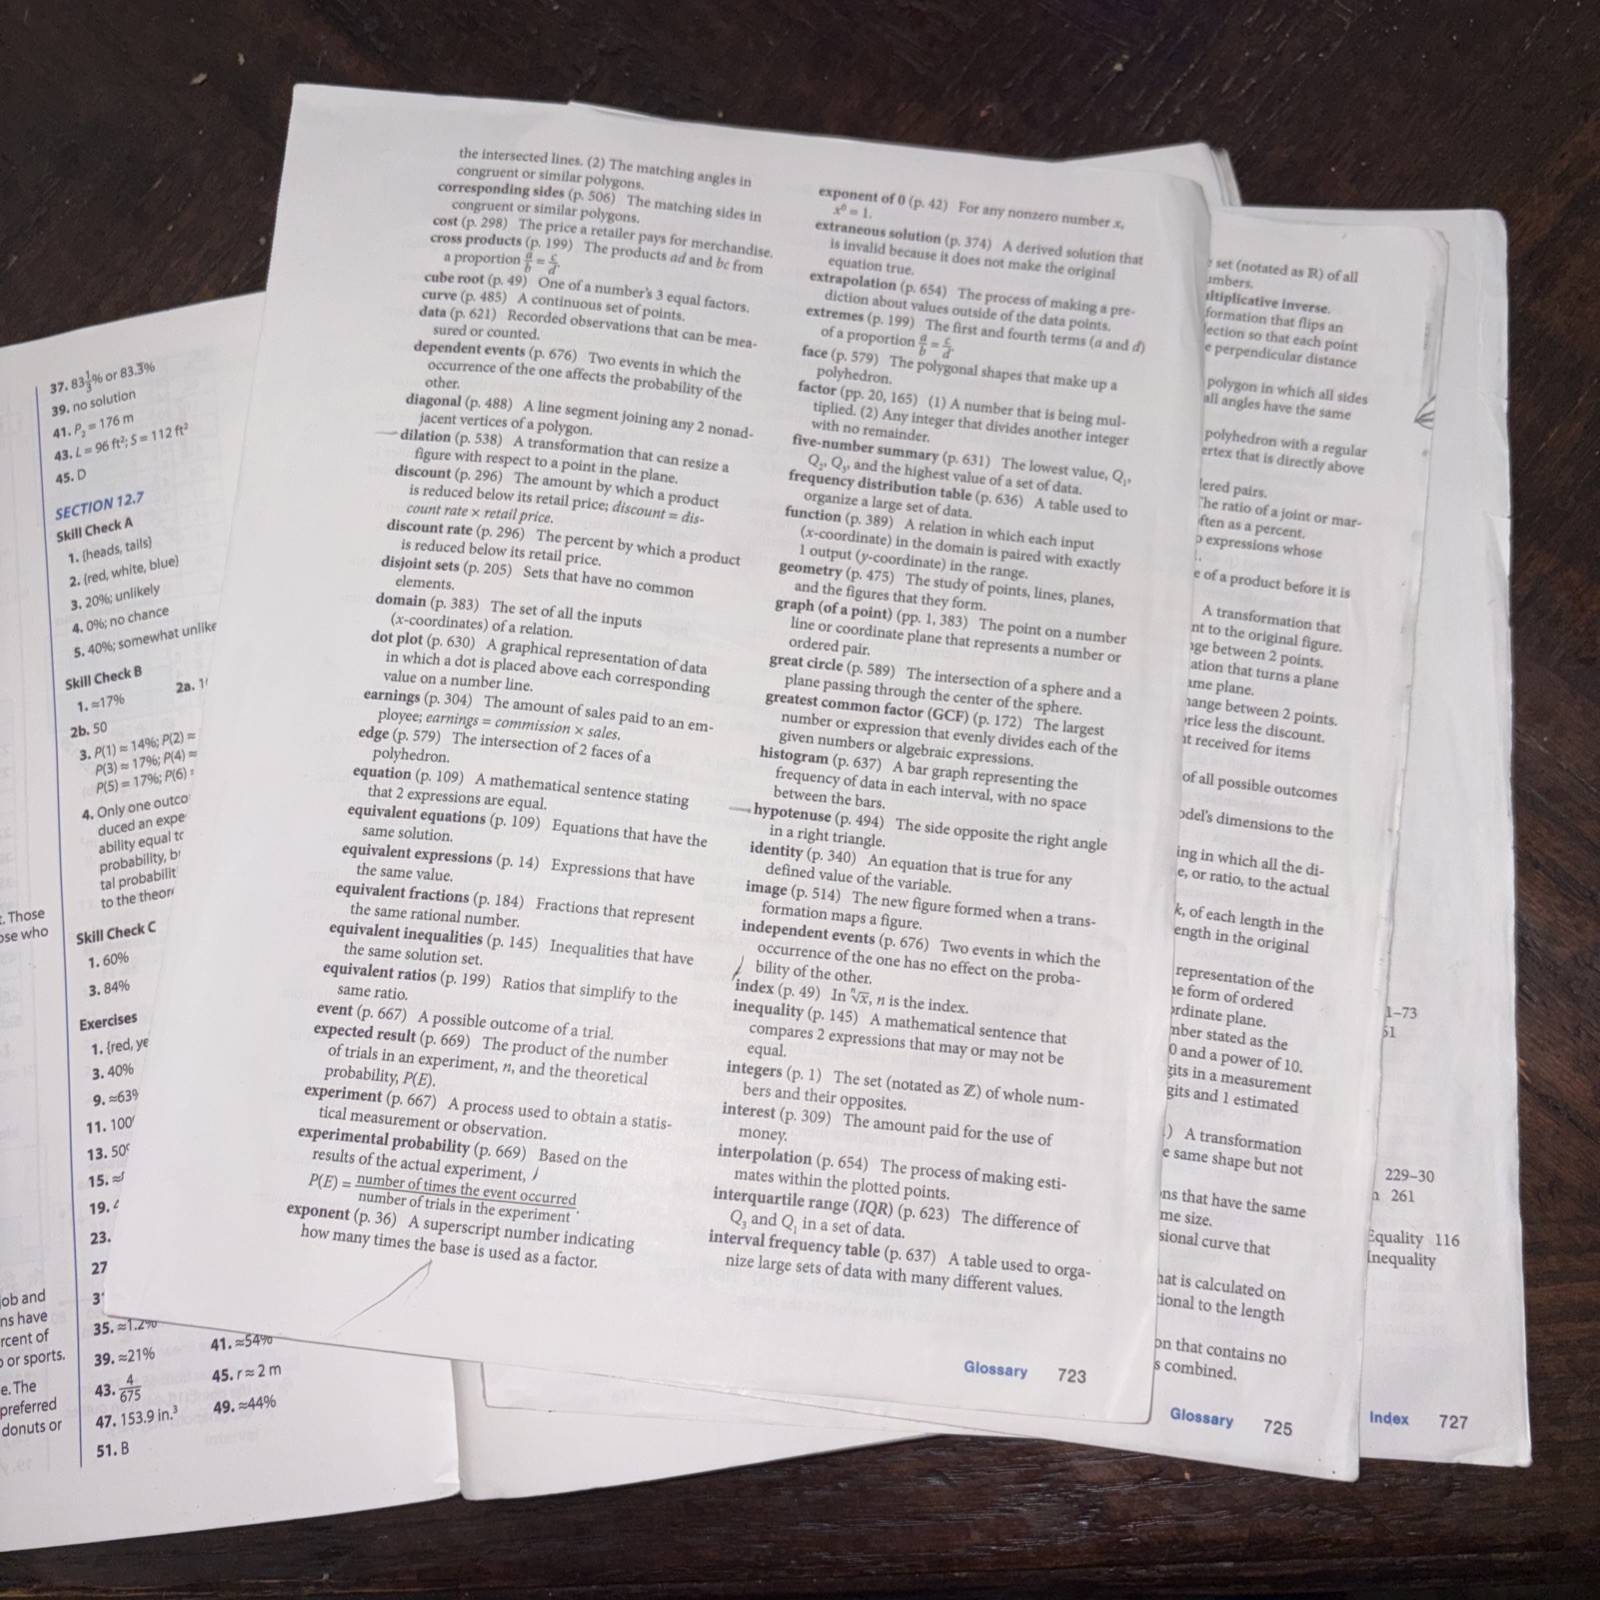 37. 83⅓% or 83.3̅%
39. no solution
41. P₃ = 176 m
43. L = 96 ft²; S = 112 ft²
45. D
SECTION 12.7
Skill Check A
1. {heads, tails}
2. {red, white, blue}
3. 20%; unlikely
4. 0%; no chance
5. 40%; somewhat unlike
Skill Check B
1. ≈17%
2a.
2b. 50
3. P(1) ≈ 14%; P(2) ≈
P(3) ≈ 17%; P(4) ≈
P(5) ≈ 17%; P(6)
4. Only one outco
duced an expe
ability equal to
probability, b
tal probabilit
to the theor
Skill Check C
1. 60%
3. 84%
Exercises
1. {red, ye
3. 40%
9. ≈63%
11. 100
13. 50
15. ≈
19.
23.
27
35. ≈1.2%
39. ≈21%
41. ≈54%
43. 4/675
45. r ≈ 2 m
47. 153.9 in.³
49. ≈44%
51. B
. Those
ose who
job and
ns have
rcent of
or sports.
e. The
preferred
donuts or
the intersected lines. (2) The matching angles in
congruent or similar polygons.
corresponding sides (p. 506) The matching sides in
congruent or similar polygons.
cost (p. 298) The price a retailer pays for merchandise.
cross products (p. 199) The products ad and bc from
a proportion a/b = c/d.
cube root (p. 49) One of a number's 3 equal factors.
curve (p. 485) A continuous set of points.
data (p. 621) Recorded observations that can be mea-
sured or counted.
dependent events (p. 676) Two events in which the
occurrence of the one affects the probability of the
other.
diagonal (p. 488) A line segment joining any 2 nonad-
jacent vertices of a polygon.
dilation (p. 538) A transformation that can resize a
figure with respect to a point in the plane.
discount (p. 296) The amount by which a product
is reduced below its retail price; discount = dis-
count rate × retail price.
discount rate (p. 296) The percent by which a product
is reduced below its retail price.
disjoint sets (p. 205) Sets that have no common
elements.
domain (p. 383) The set of all the inputs
(x-coordinates) of a relation.
dot plot (p. 630) A graphical representation of data
in which a dot is placed above each corresponding
value on a number line.
earnings (p. 304) The amount of sales paid to an em-
ployee; earnings = commission × sales.
edge (p. 579) The intersection of 2 faces of a
polyhedron.
equation (p. 109) A mathematical sentence stating
that 2 expressions are equal.
equivalent equations (p. 109) Equations that have the
same solution.
equivalent expressions (p. 14) Expressions that have
the same value.
equivalent fractions (p. 184) Fractions that represent
the same rational number.
equivalent inequalities (p. 145) Inequalities that have
the same solution set.
equivalent ratios (p. 199) Ratios that simplify to the
same ratio.
event (p. 667) A possible outcome of a trial.
expected result (p. 669) The product of the number
of trials in an experiment, n, and the theoretical
probability, P(E).
experiment (p. 667) A process used to obtain a statis-
tical measurement or observation.
experimental probability (p. 669) Based on the
results of the actual experiment,
P(E) = number of times the event occurred
number of trials in the experiment.
exponent (p. 36) A superscript number indicating
how many times the base is used as a factor.
exponent of 0 (p. 42) For any nonzero number x,
x⁰ = 1.
extraneous solution (p. 374) A derived solution that
is invalid because it does not make the original
equation true.
extrapolation (p. 654) The process of making a pre-
diction about values outside of the data points.
extremes (p. 199) The first and fourth terms (a and d)
of a proportion a/b = c/d.
face (p. 579) The polygonal shapes that make up a
polyhedron.
factor (pp. 20, 165) (1) A number that is being mul-
tiplied. (2) Any integer that divides another integer
with no remainder.
five-number summary (p. 631) The lowest value, Q₁,
Q₂, Q₃, and the highest value of a set of data.
frequency distribution table (p. 636) A table used to
organize a large set of data.
function (p. 389) A relation in which each input
(x-coordinate) in the domain is paired with exactly
1 output (y-coordinate) in the range.
geometry (p. 475) The study of points, lines, planes,
and the figures that they form.
graph (of a point) (pp. 1, 383) The point on a number
line or coordinate plane that represents a number or
ordered pair.
great circle (p. 589) The intersection of a sphere and a
plane passing through the center of the sphere.
greatest common factor (GCF) (p. 172) The largest
number or expression that evenly divides each of the
given numbers or algebraic expressions.
histogram (p. 637) A bar graph representing the
frequency of data in each interval, with no space
between the bars.
hypotenuse (p. 494) The side opposite the right angle
in a right triangle.
identity (p. 340) An equation that is true for any
defined value of the variable.
image (p. 514) The new figure formed when a trans-
formation maps a figure.
independent events (p. 676) Two events in which the
occurrence of the one has no effect on the proba-
bility of the other.
index (p. 49) In ⁿ√x, n is the index.
inequality (p. 145) A mathematical sentence that
compares 2 expressions that may or may not be
equal.
integers (p. 1) The set (notated as ℤ) of whole num-
bers and their opposites.
interest (p. 309) The amount paid for the use of
money.
interpolation (p. 654) The process of making esti-
mates within the plotted points.
interquartile range (IQR) (p. 623) The difference of
Q₃ and Q₁ in a set of data.
interval frequency table (p. 637) A table used to orga-
nize large sets of data with many different values.
Glossary 723
set (notated as ℝ) of all
umbers.
ultiplicative inverse.
formation that flips an
lection so that each point
e perpendicular distance
polygon in which all sides
all angles have the same
polyhedron with a regular
ertex that is directly above
lered pairs.
The ratio of a joint or mar-
ften as a percent.
expressions whose
e of a product before it is
A transformation that
nt to the original figure.
nge between 2 points.
ation that turns a plane
ame plane.
hange between 2 points.
price less the discount.
nt received for items
of all possible outcomes
odel's dimensions to the
ing in which all the di-
e, or ratio, to the actual
k, of each length in the
ength in the original
representation of the
he form of ordered
ordinate plane.
mber stated as the
0 and a power of 10.
gits in a measurement
gits and 1 estimated
) A transformation
e same shape but not
ns that have the same
me size.
sional curve that
hat is calculated on
tional to the length
on that contains no
s combined.
Glossary 725
1–73
51
229–30
n 261
Equality 116
Inequality
Index 727